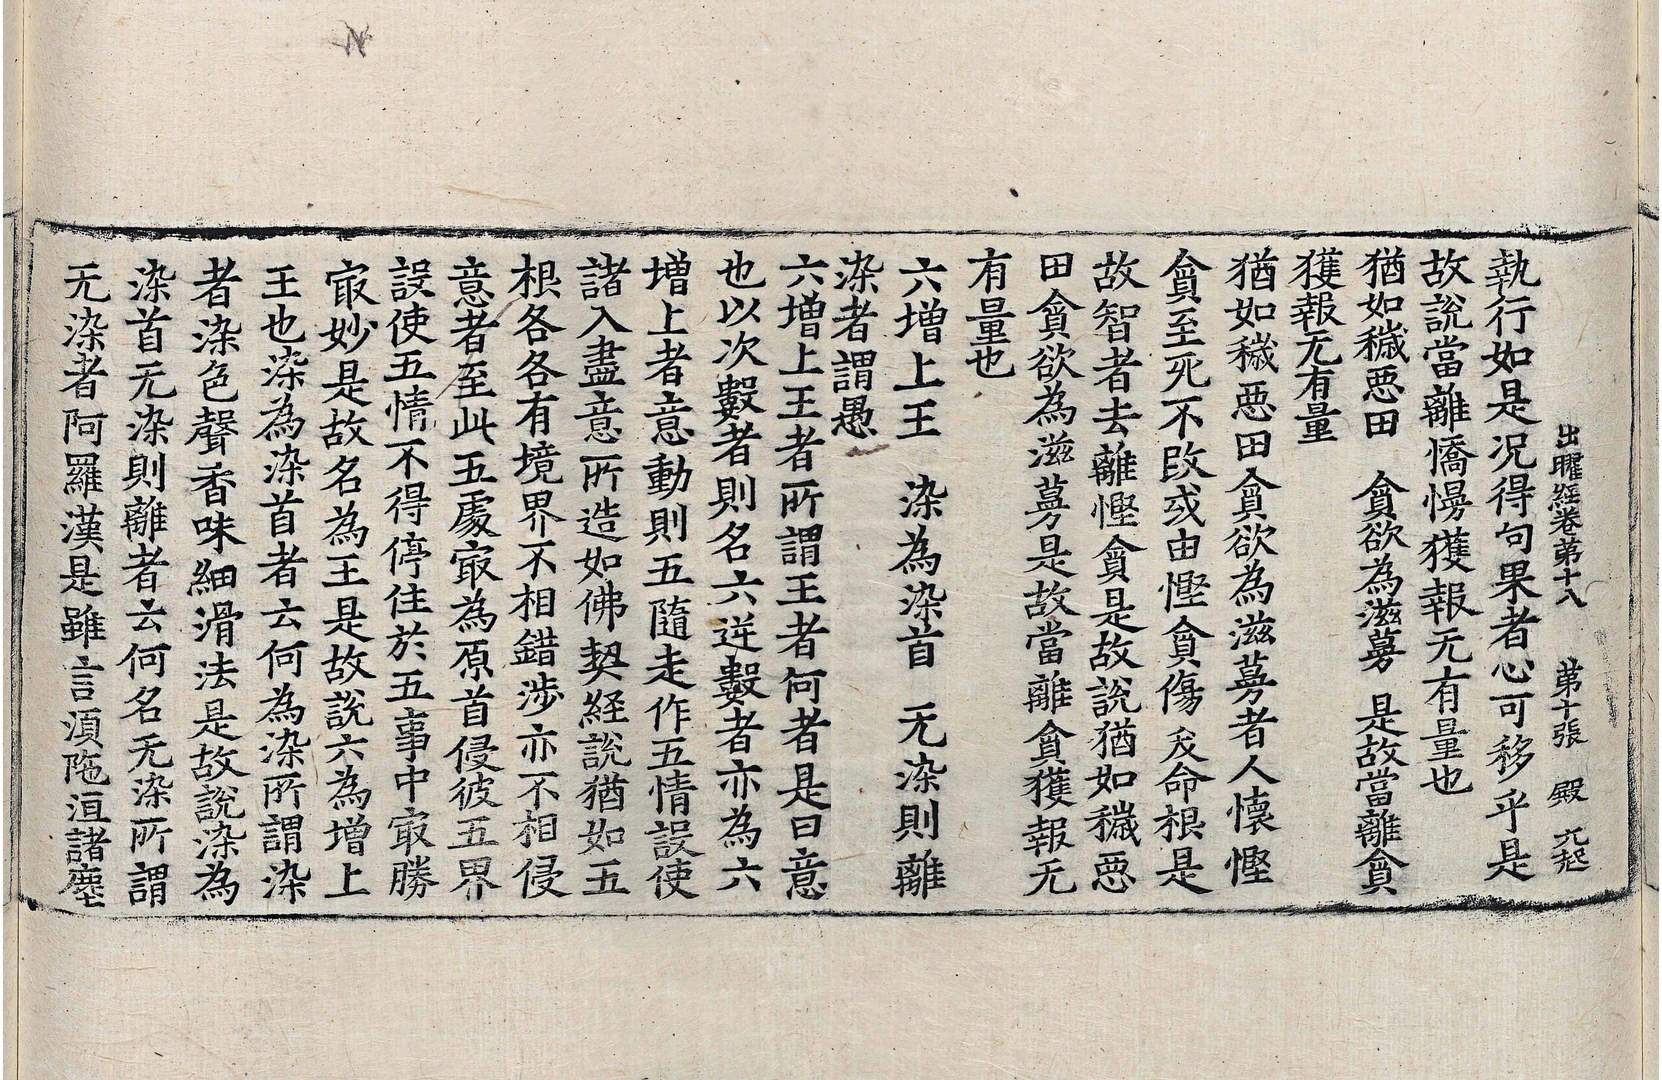 出曜經卷苐十八　苐十張　殿
執行如是况得句果者心可移乎是
故說當離憍慢獲報无有量也
猶如穢惡田　貪欲為滋蔓　是故當離貪
獲報无有量
猶如穢惡田貪欲為滋蔓者人懷慳
貪至死不改或由慳貪傷矣命根是
故智者去離慳貪是故說猶如穢惡
田貪欲為滋蔓是故當離貪獲報无
有量也
六增上王　染為染首　无染則離
染者謂愚
六增上王者所謂王者何者是曰意
也以次數者則名六逆數者亦為六
增上者意動則五隨走作五情設使
諸入盡意所造如佛契經說猶如五
根各各有境界不相錯涉亦不相侵
意者至此五處㝡為原首侵彼五界
設使五情不得停住於五事中㝡勝
㝡妙是故名為王是故說六為增上
王也染為染首者云何為染所謂染
者染色聲香味細滑法是故說染為
染首无染則離者云何名无染所謂
无染者阿羅漢是雖言湏陁洹諸塵